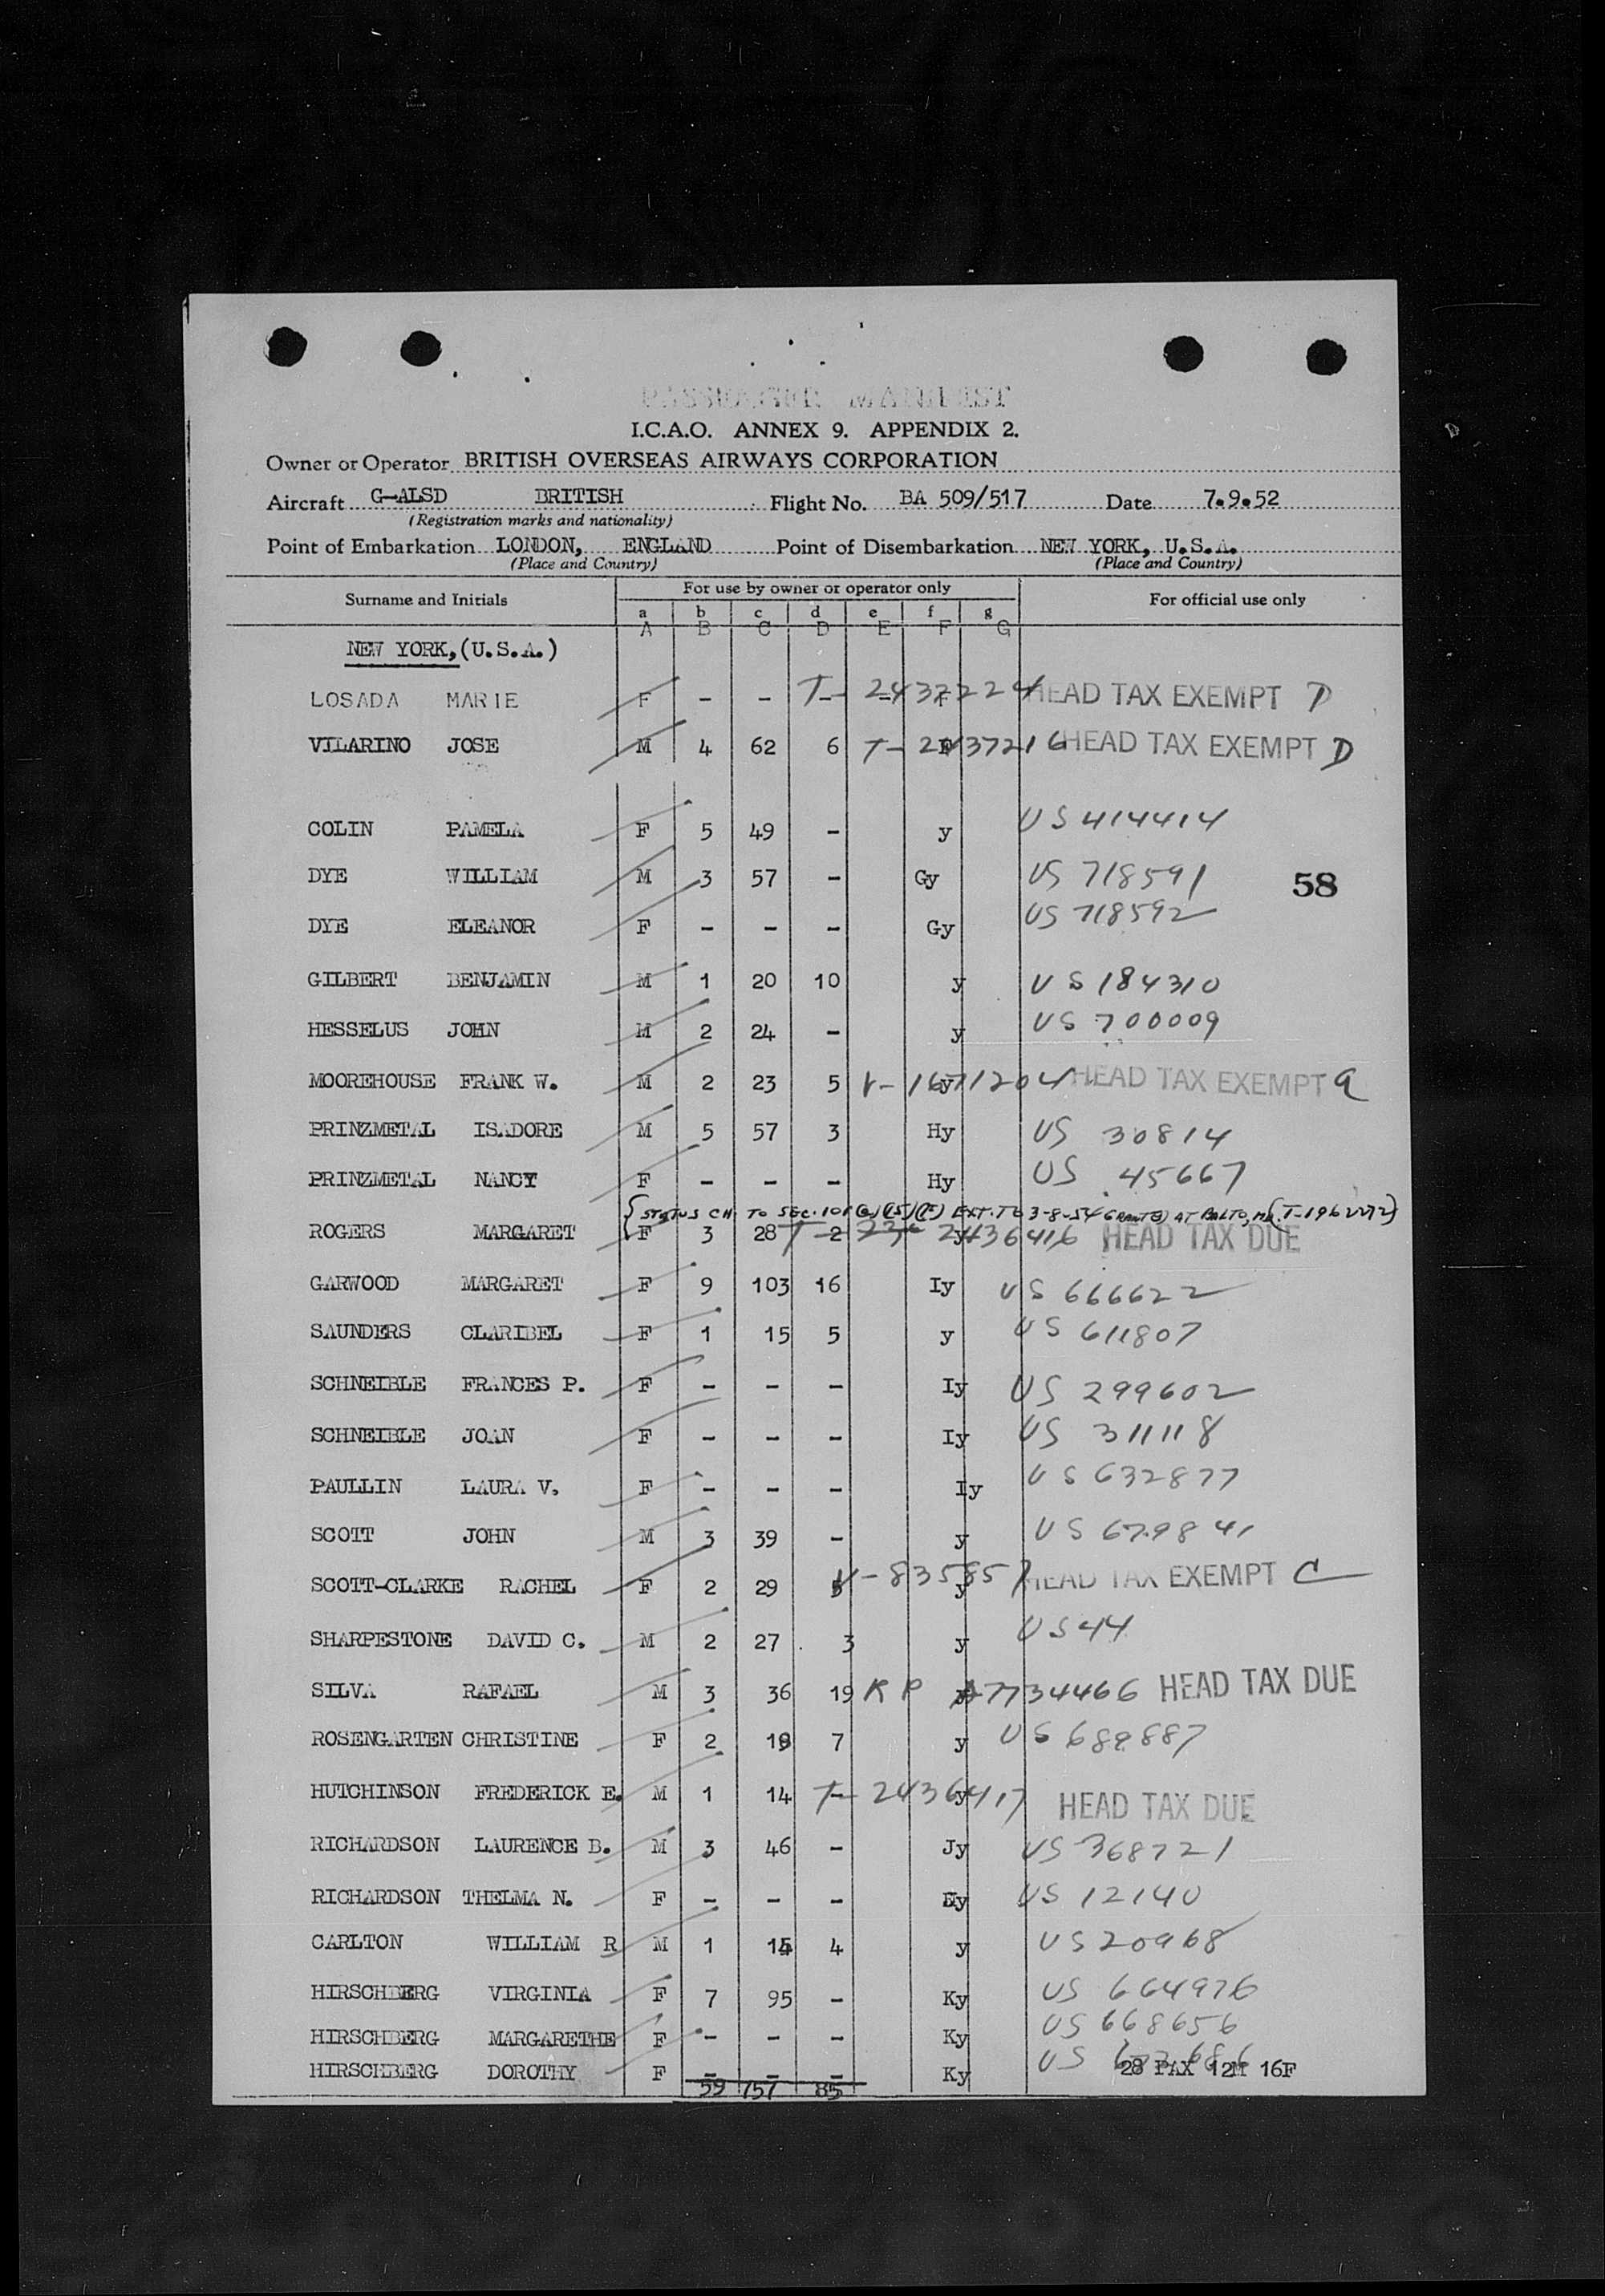 PASSENGER MANIFEST
I.C.A.O. ANNEX 9. APPENDIX 2.
Owner or Operator BRITISH OVERSEAS AIRWAYS CORPORATION
Aircraft G-ALSD BRITISH Flight No. BA 509/517 Date 7.9.52
(Registration marks and nationality)
Point of Embarkation LONDON, ENGLAND Point of Disembarkation NEW YORK, U.S.A.
(Place and Country) (Place and Country)
Surname and Initials For use by owner or operator only For official use only
a b c d e f g
A B C D E F G
NEW YORK, (U.S.A.)
LOSADA MARIE F - - - T-2437224 HEAD TAX EXEMPT D
VILARINO JOSE M 4 62 6 T-2437216 HEAD TAX EXEMPT D
COLIN PAMELA F 5 49 - y US 414414
DYE WILLIAM M 3 57 - Gy US 718591 58
DYE ELEANOR F - - - Gy US 718592
GILBERT BENJAMIN M 1 20 10 y US 184310
HESSELUS JOHN M 2 24 - y US 700009
MOOREHOUSE FRANK W. M 2 23 5 V-1671204 HEAD TAX EXEMPT a
PRINZMETAL ISADORE M 5 57 3 Hy US 30814
PRINZMETAL NANCY F - - - Hy US 45667
{STATUS CH. TO SEC. 101 (a)(15)(F) EXT. TO 3-8-54 GRANTED AT BALTO, Md. (T-1962272)
ROGERS MARGARET F 3 28 2 T- 2436416 HEAD TAX DUE
GARWOOD MARGARET F 9 103 16 Iy US 666622
SAUNDERS CLARIBEL F 1 15 5 y US 611807
SCHNEIBLE FRANCES P. F - - - Iy US 299602
SCHNEIBLE JOAN F - - - Iy US 311118
PAULLIN LAURA V. F - - - Iy US 632877
SCOTT JOHN M 3 39 - y US 679841
SCOTT-CLARKE RACHEL F 2 29 5 V-835857 y HEAD TAX EXEMPT C
SHARPESTONE DAVID C. M 2 27 3 y US 44
SILVA RAFAEL M 3 36 19 RP A7734466 HEAD TAX DUE
ROSENGARTEN CHRISTINE F 2 19 7 y US 689887
HUTCHINSON FREDERICK E. M 1 14 - T-2436417 y HEAD TAX DUE
RICHARDSON LAURENCE B. M 3 46 - Jy US 368721
RICHARDSON THELMA N. F - - - y US 12140
CARLTON WILLIAM R M 1 15 4 y US 20968
HIRSCHBERG VIRGINIA F 7 95 - Ky US 664976
HIRSCHBERG MARGARETHE F - - - Ky US 668656
HIRSCHBERG DOROTHY F - - - Ky US 28 PAX 12M 16F
59 757 85